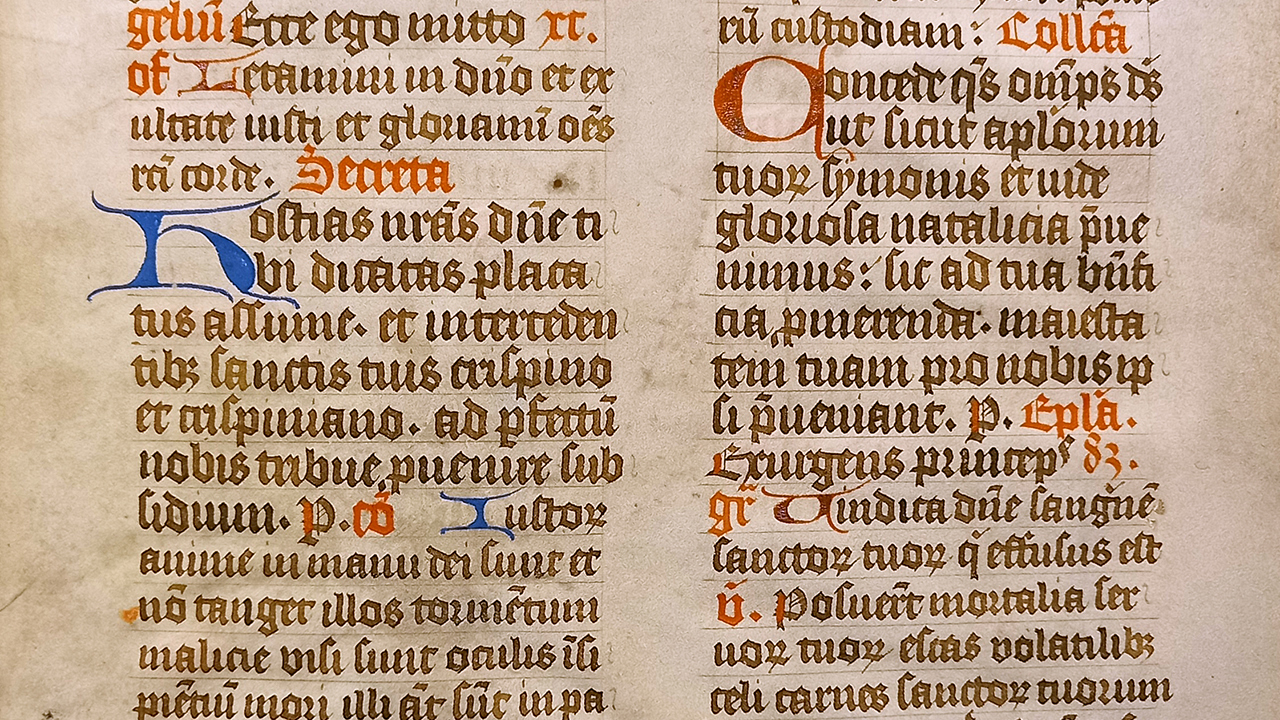 geliū Ecce ego mitto xx.
of Letamini in dn̄o et ex
ultate iusti et gloriamī oēs
rcī corde. Secreta
Hostias nrās dn̄e ti
bi dicatas placa
tus assume. et interceden
tibꝫ sanctis tuis crispino
et crispiniano. ad ꝑfectū
nobis tribue ꝓuenire sub
sidium. P. cō Iustoꝝ
anime in manu dei sunt et
nō tanget illos tormētum
malicie visi sunt oculis īsi
piētiū mori illi āt sūt in pa
rū custodiam: Collc̄a
Concede qs̄ om̄ps ds̄
ut sicut apl̄orum
tuoꝝ symonis et iude
gloriosa natalicia p̄ue
nimus: sic ad tua bn̄fi
cia ꝓmerenda. maiesta
tem tuam pro nobis ip
si p̄ueniant. P. Epl̄a.
Exurgens princeps 83.
gr̄ Uindica dn̄e sanguēꝫ
sanctoꝝ tuoꝝ qͥ effusus est
v̄. Posuer̄t mortalia ser
uoꝝ tuoꝝ escas volatilibꝫ
celi carnes sanctoꝝ tuorum